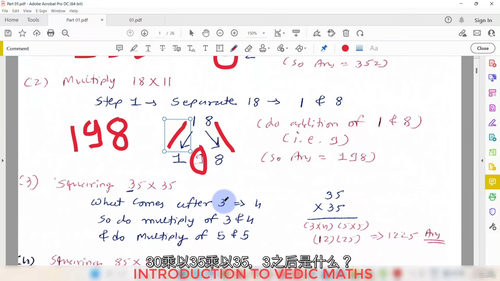 Part 01.pdf - Adobe Acrobat Pro DC (64-bit)
File Edit View Sign Window Help
Home Tools Part 01.pdf 01.pdf Sign In
1 / 26 150%
Comment
(So Ans = 352)
(2) Multiply 18 X 11
Step 1 → Separate 18 → 1 & 8
198
18
(do addition of 1 & 8)
(i.e. 9)
1 9 8
(So Ans = 198)
(3) Squaring 35 X 35
What comes after 3 => 4
So do multiply of 3 & 4
& do multiply of 5 & 5
35
X 35
(3X4) (5X5)
(12) (25) => 1225 Ans
30乘以35乘以35，3之后是什么？
(4) Squaring 85 X
INTRODUCTION TO VEDIC MATHS